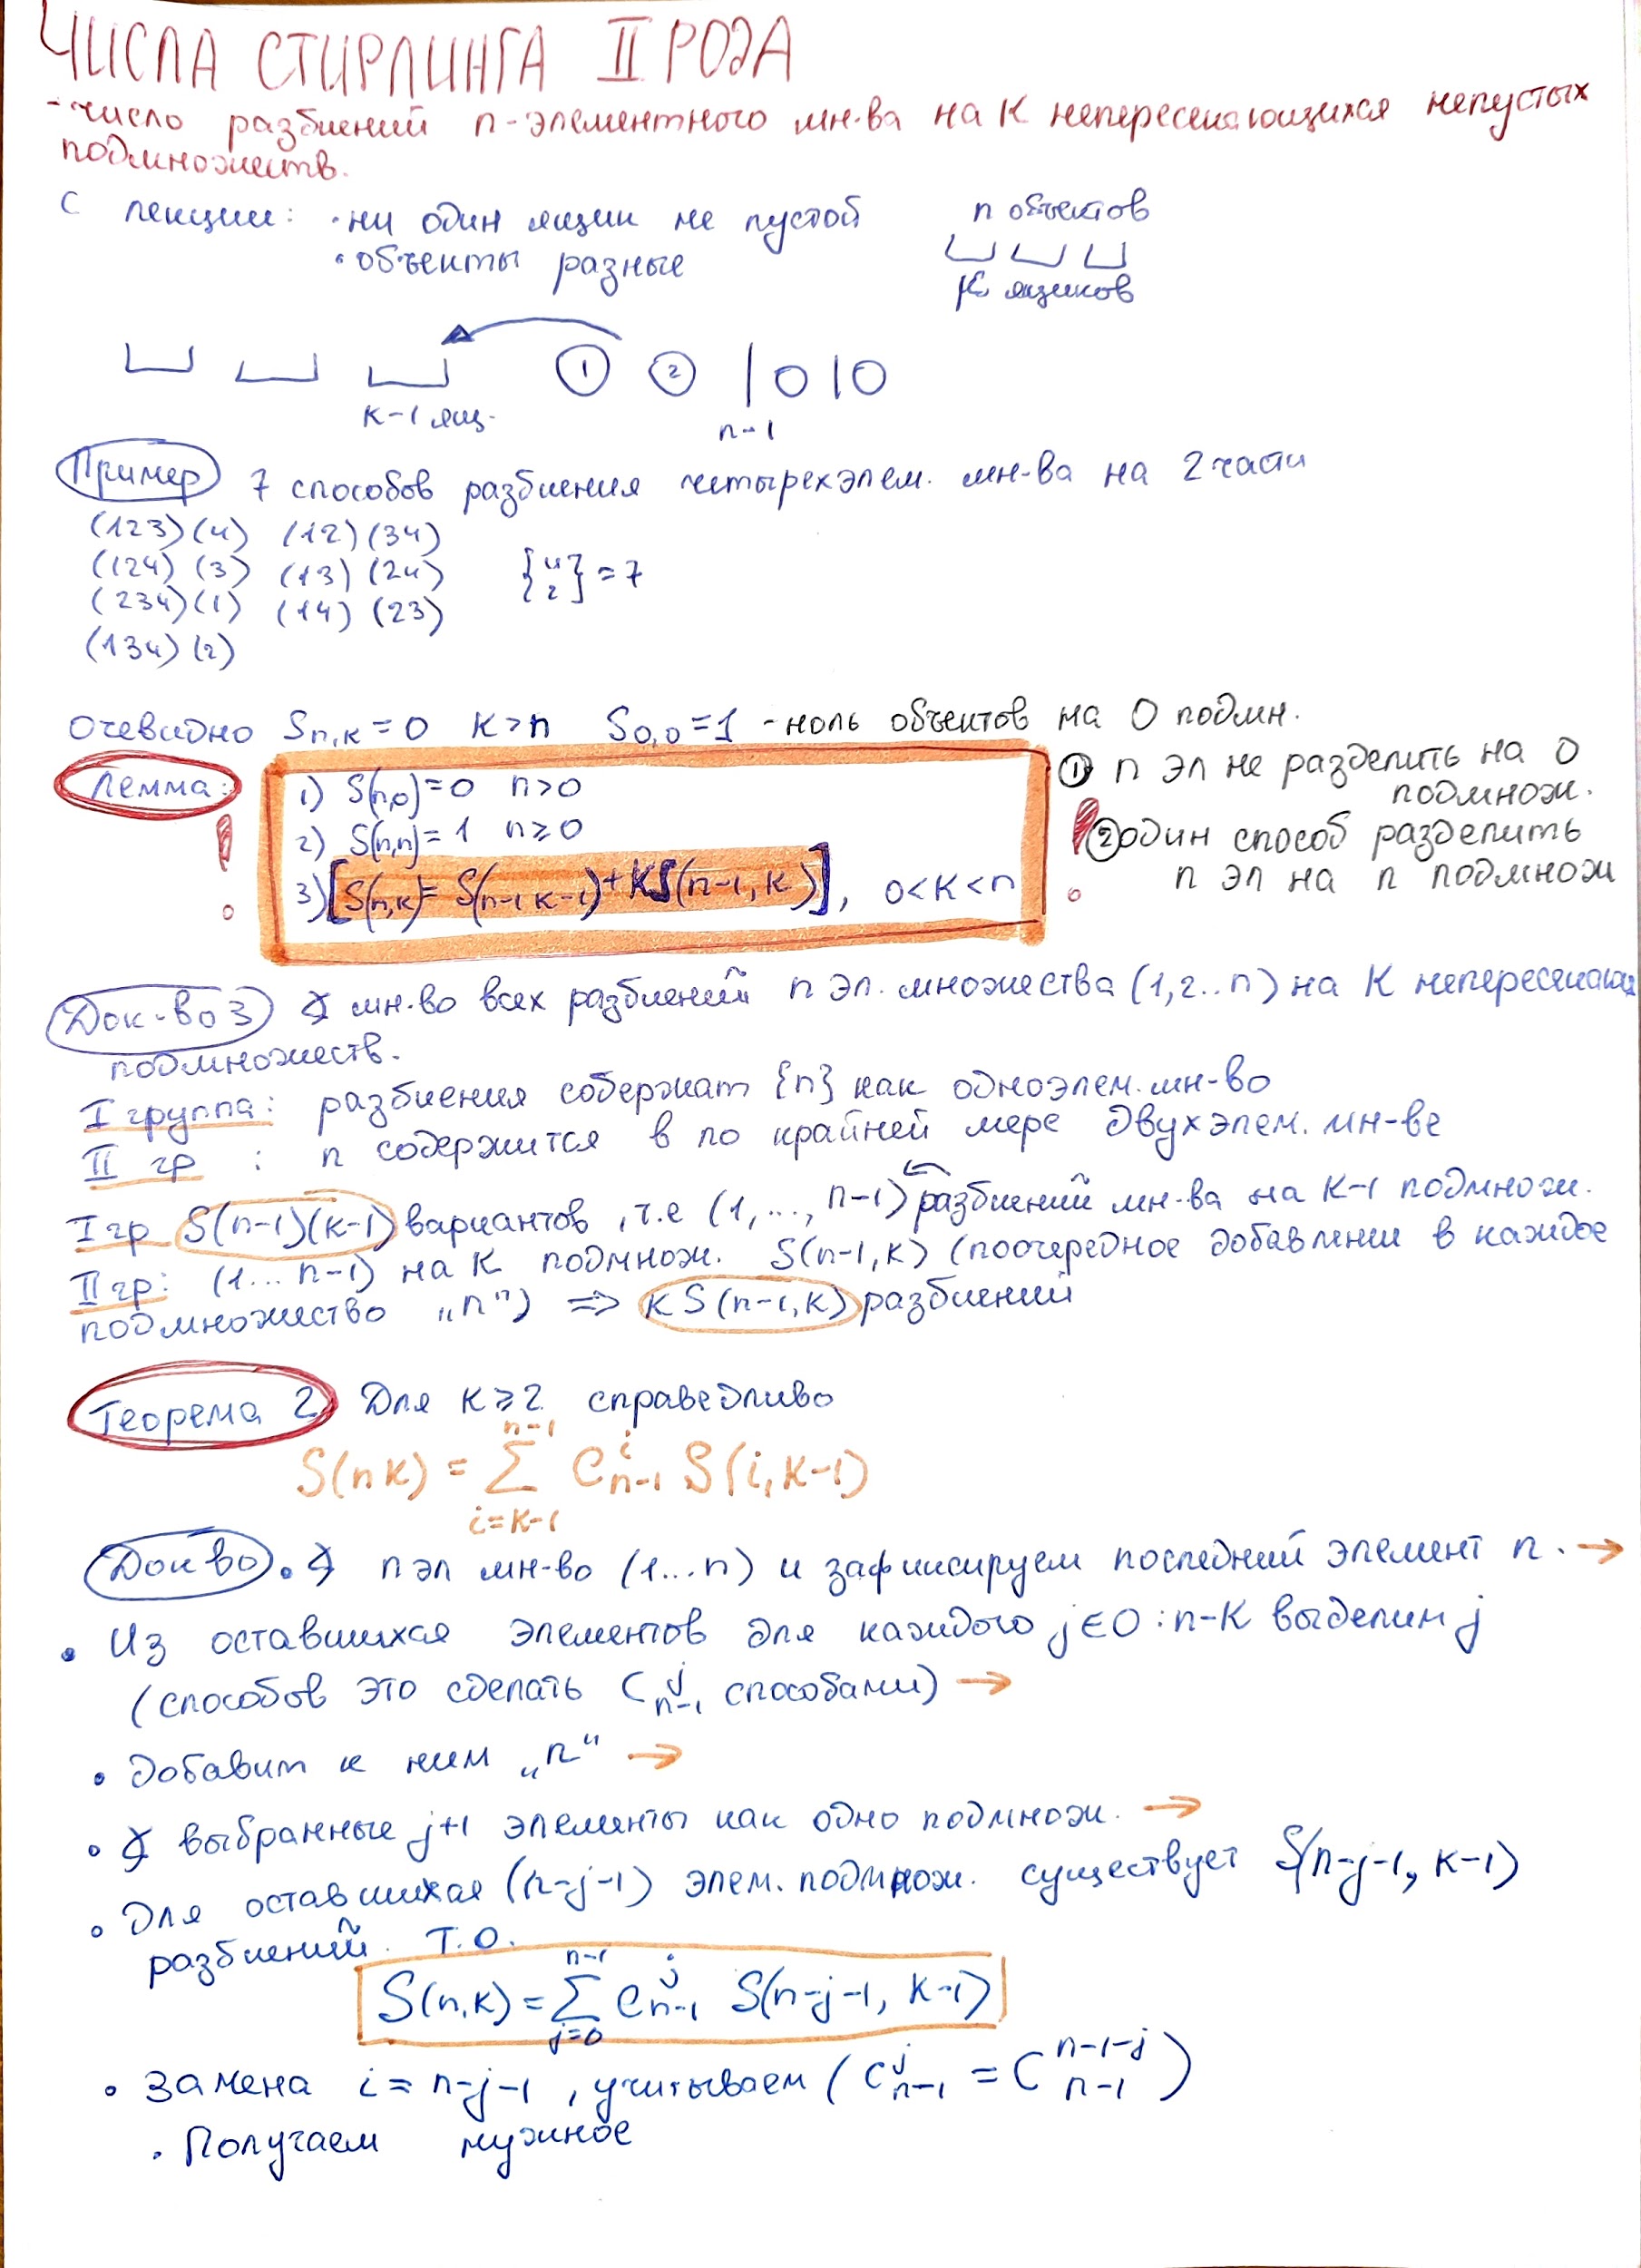 ЧИСЛА СТИРЛИНГА II РОДА
- число разбиений n-элементного мн-ва на К непересекающихся непустых
подмножеств.
С лекции: · ни один ящик не пустой n объектов
· объекты разные
К ящиков
1 2 | 0 | 0
к-1 ящ. n-1
Пример 7 способов разбиения четырехэлем. мн-ва на 2 части
(123)(4) (12)(34)
(124) (3) (13) (24) {4 2} = 7
(234)(1) (14) (23)
(134) (2)
Очевидно Sn,к = 0 К>n S0,0 = 1 - ноль объектов на 0 подмн.
Лемма: 1) S(n,0) = 0 n>0 ① n эл не разделить на 0
подмнож.
2) S(n,n) = 1 n≥0 ② один способ разделить
n эл на n подмнож
3) [S(n,к) = S(n-1 к-1) + КS(n-1, к)], 0<К<n
Док-во 3 ∢ мн-во всех разбиений n эл. множества (1,2..n) на К непересекающ
подмножеств.
I группа: разбиения содержат {n} как одноэлем. мн-во
II гр : n содержится в по крайней мере двухэлем. мн-ве
I гр S(n-1)(к-1) вариантов, т.е (1,..., n-1) разбиений мн-ва на к-1 подмнож.
II гр: (1... n-1) на К подмнож. S(n-1,к) (поочередное добавление в каждое
подмножество „n") => К S(n-1,к) разбиений
Теорема 2 Для К≥2 справедливо
S(n к) = ∑_{i=к-1}^{n-1} C_{n-1}^{i} S(i, к-1)
Док во. ∢ n эл мн-во (1...n) и зафиксируем последний элемент n. →
· Из оставшихся элементов для каждого j∈0:n-К выделим j
(способов это сделать C_{n-1}^{j} способами) →
· Добавит к ним „n" →
· ∢ выбранные j+1 элементы как одно подмнож. →
· Для оставшихся (n-j-1) элем. подмнож. существует S(n-j-1, к-1)
разбиений. Т.О.
S(n,к) = ∑_{j=0}^{n-1} C_{n-1}^{j} S(n-j-1, к-1)
· Замена i = n-j-1, учитываем (C_{n-1}^{j} = C_{n-1}^{n-1-j})
· Получаем нужное